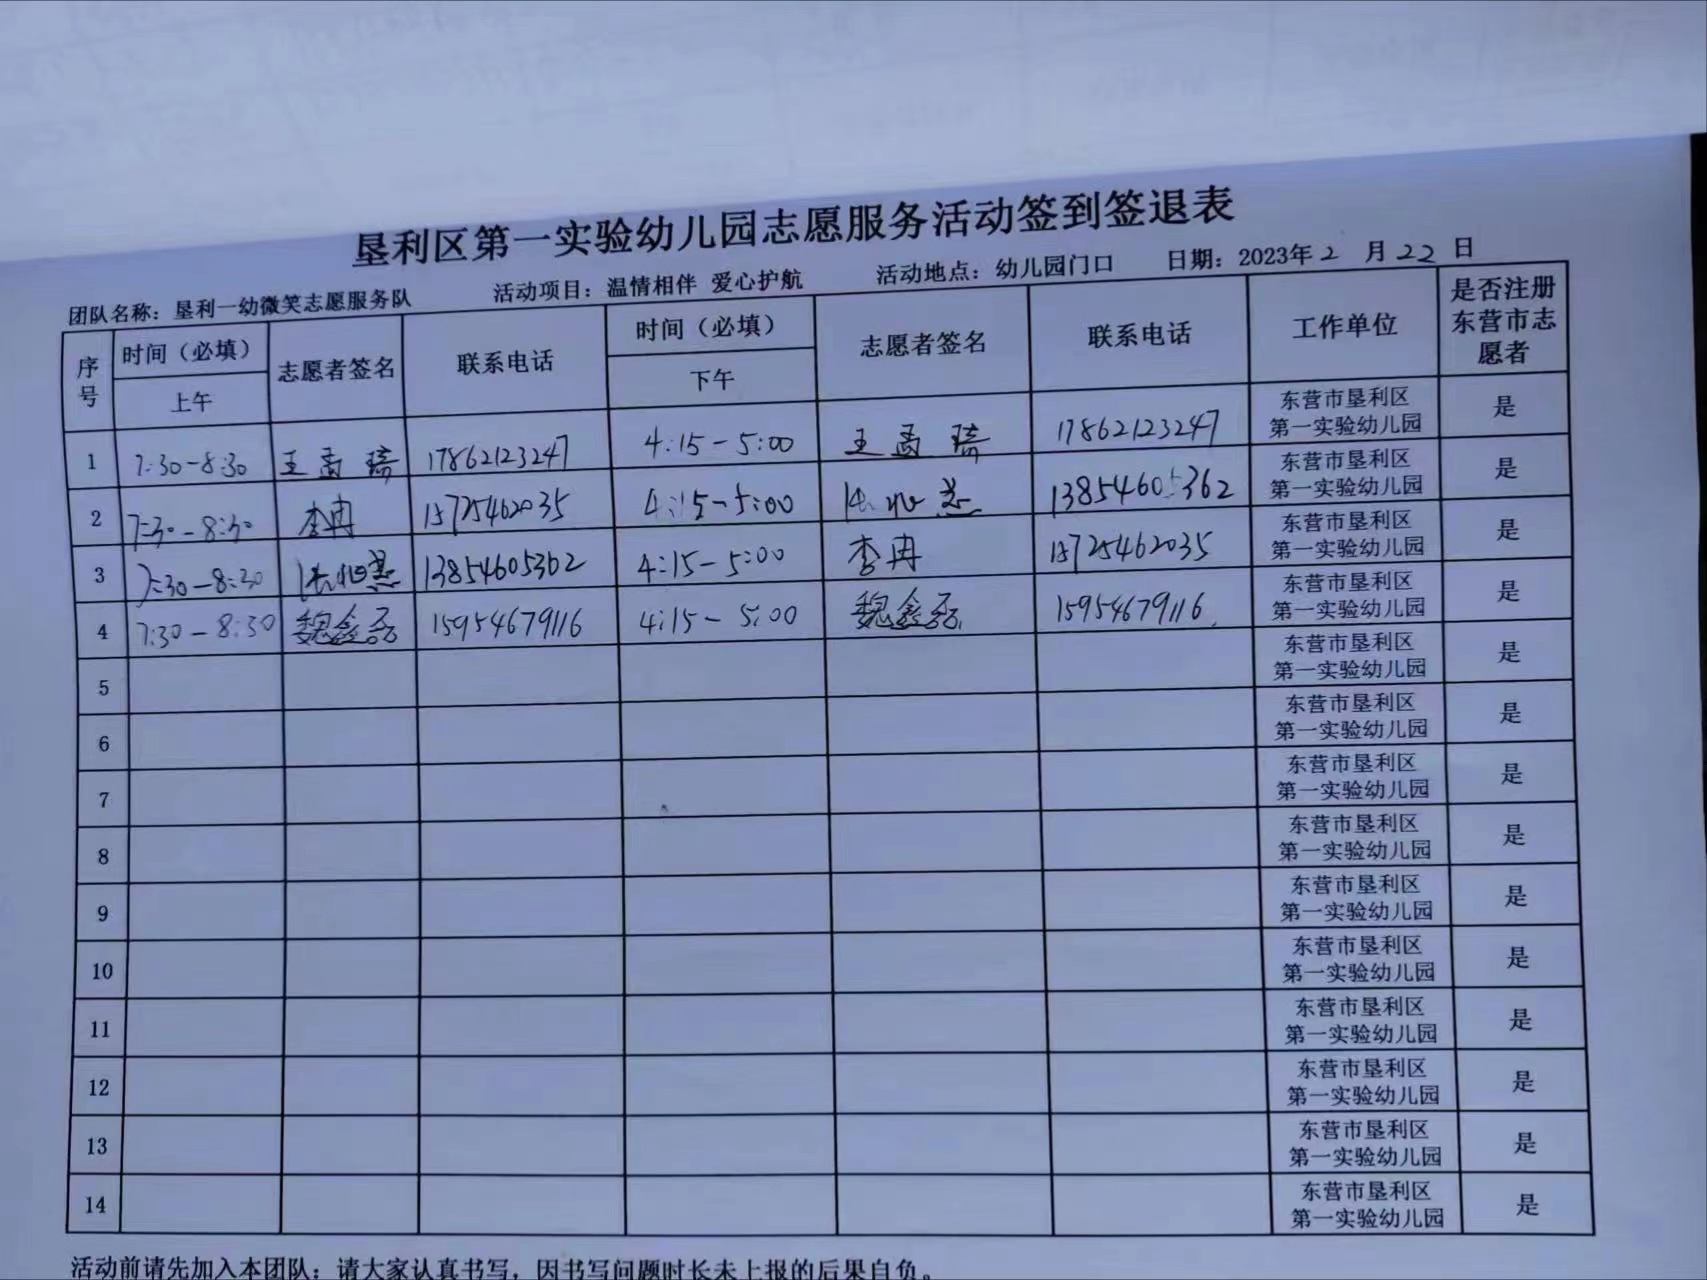 垦利区第一实验幼儿园志愿服务活动签到签退表
团队名称：垦利一幼微笑志愿服务队 活动项目：温情相伴 爱心护航 活动地点：幼儿园门口 日期：2023年2 月22 日
序号 时间（必填） 上午 志愿者签名 联系电话 时间（必填） 下午 志愿者签名 联系电话 工作单位 是否注册东营市志愿者
1 7:30-8:30 王孟琦 17862123247 4:15-5:00 王孟琦 17862123247 东营市垦利区第一实验幼儿园 是
2 7:30-8:30 李冉 15725462035 4:15-5:00 张 13854605362 东营市垦利区第一实验幼儿园 是
3 7:30-8:30 张 13854605362 4:15-5:00 李冉 15725462035 东营市垦利区第一实验幼儿园 是
4 7:30-8:30 魏鑫磊 15954679116 4:15-5:00 魏鑫磊 15954679116 东营市垦利区第一实验幼儿园 是
5 东营市垦利区第一实验幼儿园 是
6 东营市垦利区第一实验幼儿园 是
7 东营市垦利区第一实验幼儿园 是
8 东营市垦利区第一实验幼儿园 是
9 东营市垦利区第一实验幼儿园 是
10 东营市垦利区第一实验幼儿园 是
11 东营市垦利区第一实验幼儿园 是
12 东营市垦利区第一实验幼儿园 是
13 东营市垦利区第一实验幼儿园 是
14 东营市垦利区第一实验幼儿园 是
活动前请先加入本团队；请大家认真书写，因书写问题时长未上报的后果自负。